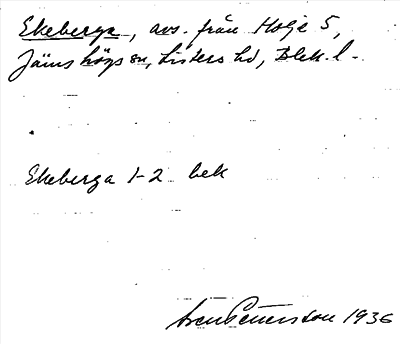 Ekeberga, avs. från Holje 5,
Jämshögs sn, Listers hd, Blek. l.
Ekeberga 1-2 bek
Sven Petersson 1936